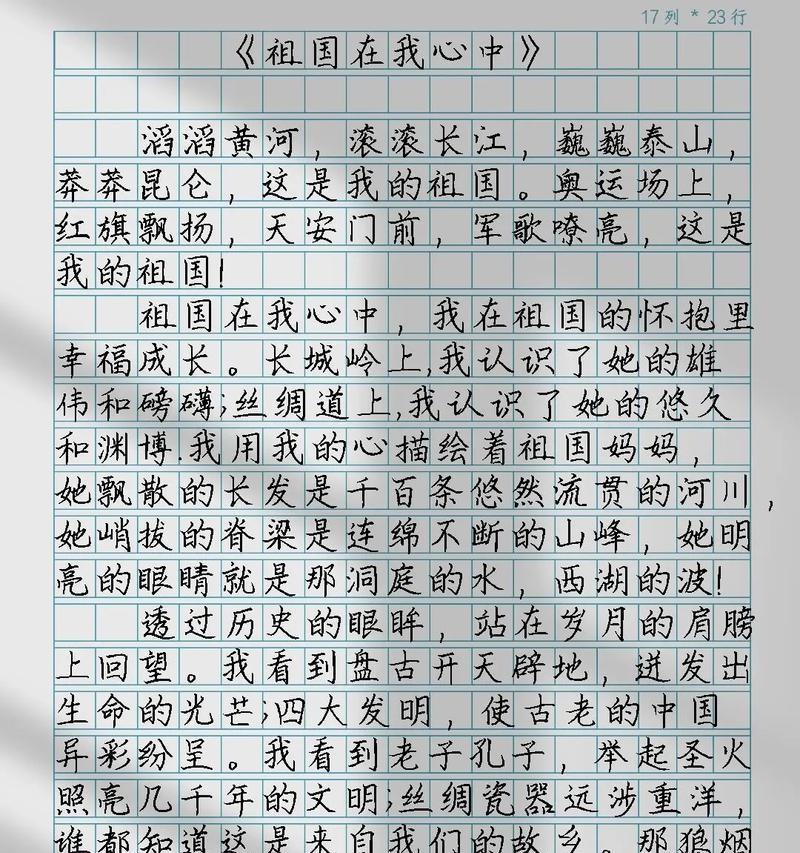 17列 * 23行
《祖国在我心中》
滔滔黄河，滚滚长江，巍巍泰山，
莽莽昆仑，这是我的祖国。奥运场上，
红旗飘扬，天安门前，军歌嘹亮，这是
我的祖国！
祖国在我心中，我在祖国的怀抱里
幸福成长。长城岭上,我认识了她的雄
伟和磅礴;丝绸道上,我认识了她的悠久
和渊博.我用我的心描绘着祖国妈妈，
她飘散的长发是千百条悠然流贯的河川，
她峭拔的脊梁是连绵不断的山峰，她明
亮的眼睛就是那洞庭的水，西湖的波！
透过历史的眼眸，站在岁月的肩膀
上回望。我看到盘古开天辟地，迸发出
生命的光芒;四大发明，使古老的中国
异彩纷呈。我看到老子孔子，举起圣火
照亮几千年的文明;丝绸瓷器远涉重洋，
谁都知道这是来自我们的故乡。那狼烟